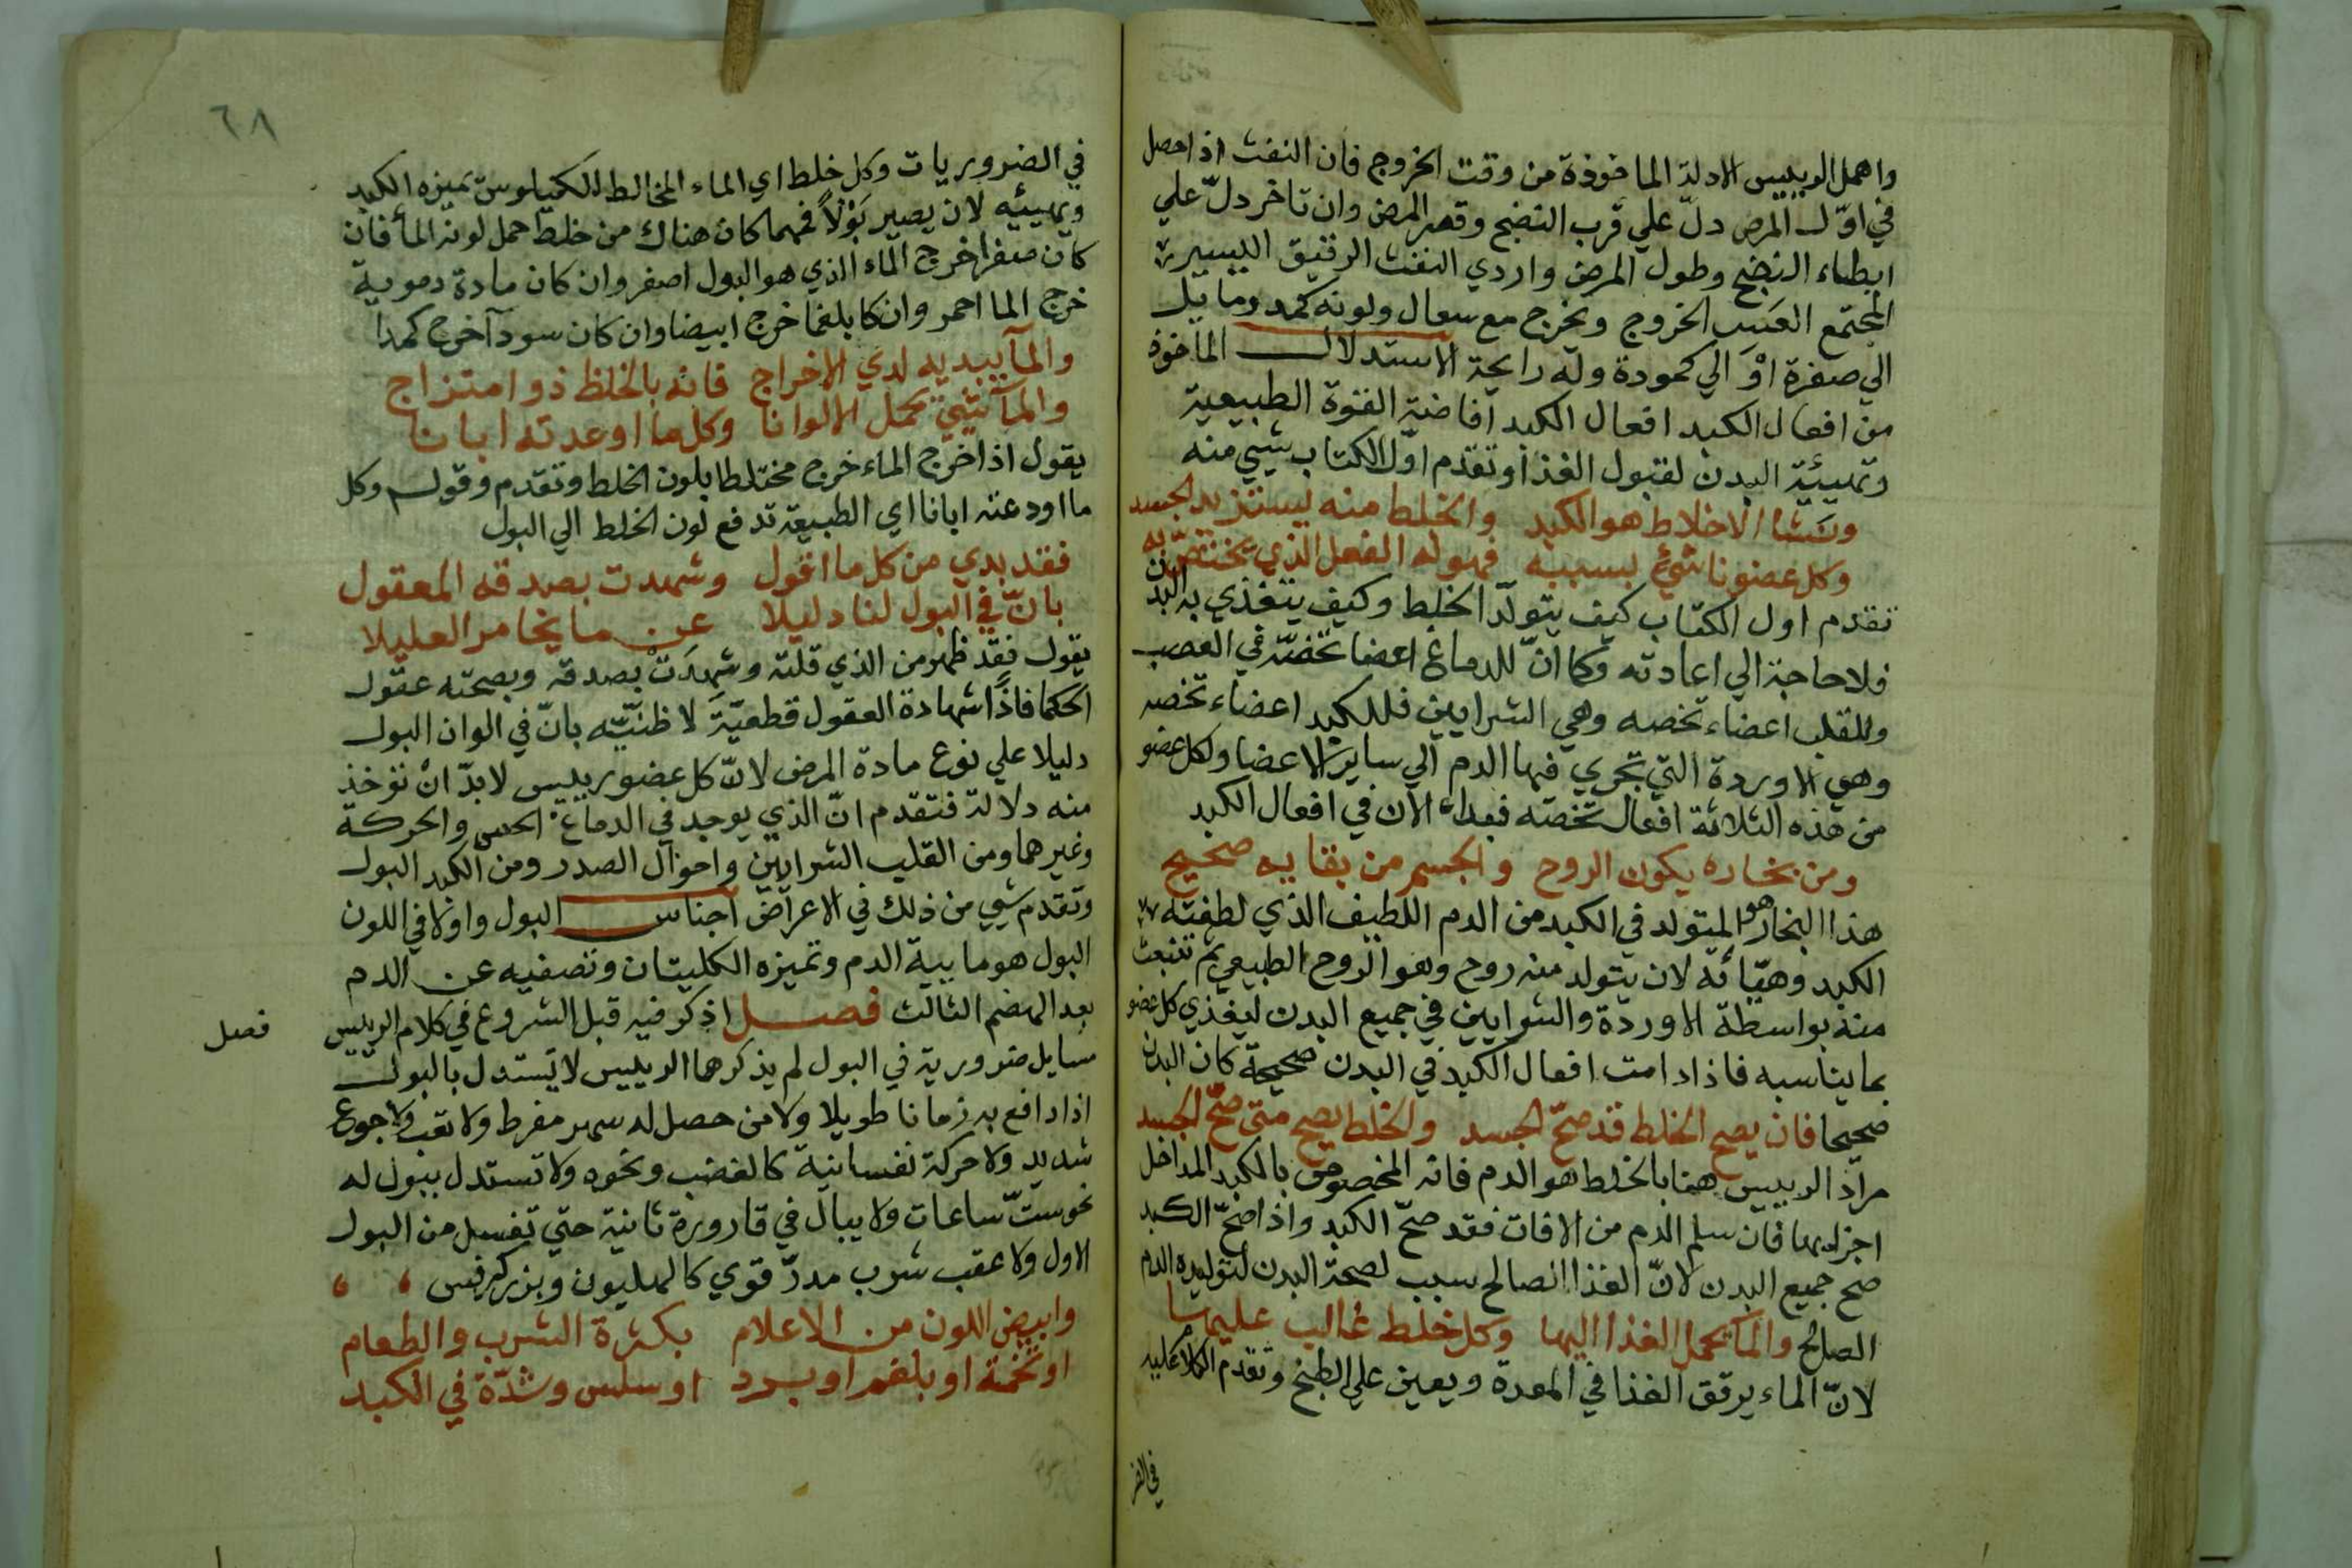 واهمل الرييس الادلة الماخوذة من وقت الخروج فان النفث اذا حصل
في اوّل المرض دلّ علي قرب النضج وقصر المرض وان تاخر دلّ علي
ابطاء النضج وطول المرض واردي النفث الرقيق اليسير
المجتمع العسر الخروج ويخرج مع سعال ولونه كمد ومايل
الي صفرة اوْ الي كمودة وله رايحة الاستدلال الماخوذ
من افعال الكبد افعال الكبد افاضة القوة الطبيعية
وتهييئة البدن لقبول الغذا وتقدم اوّل الكتاب شيي منه
ومنشا الاخلاط هو الكبد والخلط منه يستزيد الجسد
وكل عضو ناشئ بسببه فهو له الفعل الذي يختصّ به
تقدم اول الكتاب كيف يتولّد الخلط وكيف يتغذي به البدن
فلا حاجة الي اعادته وكما انّ للدماغ اعضا تخصّه في العصب
وللقلب اعضاء تخصه وهي الشرايين فللكبد اعضاء تخصه
وهي الاوردة التي تجري فيها الدم الي ساير الاعضا ولكل عضو
من هذه الثلاثة افعال تخصّه فبدا الان في افعال الكبد
ومن بخاره يكون الروح والجسم من بقايه صحيح
هذا البخار هو المتولد في الكبد من الدم اللطيف الذي لطفته
الكبد وهيّاته لان يتولد منه روح وهو الروح الطبيعي ثم تنبعث
منه بواسطة الاوردة والشرايين في جميع البدن ليغذي كل عضو
بما يناسبه فاذا دامت افعال الكبد في البدن صحيحة كان البدن
صحيحا فان يصح الخلط قد صحّ الجسد والخلط يصح متي صحّ الجسد
مراد الرييس هنا بالخلط هو الدم فانه المخصوص بالكبد المداخل
اجزايها فان سلم الدم من الافات فقد صحّ الكبد واذا صحّ الكبد
صح جميع البدن لانّ الغذا الصالح سبب لصحة البدن لتوليده الدم
الصالح والما يحمل الغذا اليها وكل خلط غالب عليها
لانّ الماء يرقق الغذا في المعدة ويعين علي الطبخ وتقدم الكلام عليه
في الضر
٦٨
في الضروريات وكل خلط اي الماء المخالط للكيلوس يميزه الكبد
ويهييئه لان يصير بَوْلاً فمهما كان هناك من خلط حمل لونه الما فان
كان صفرا خرج الماء الذي هو البول اصفر وان كان مادة دموية
خرج الما احمر وان كا بلغما خرج ابيضا وان كان سودا خرج كمدا
والما يبديه لدي الاخراج فانه بالخلط ذو امتزاج
والما شيي يحمل الالوانا وكل ما اوعدته ابانا
يقول اذا خرج الماء خرج مختلطا بلون الخلط وتقدم وقول وكل
ما اودعته ابانا اي الطبيعة تدفع لون الخلط الي البول
فقد بدي من كل ما اقول وشهدت بصدقه المعقول
بانّ في البول لنا دليلا عن ما يخامر العليلا
يقول فقد ظهر من الذي قلته وشهدَتْ بصدقه وبصحته عقول
الحكما فاذًا شهادة العقول قطعيّة لا ظنيّه بانّ في الوان البول
دليلا علي نوع مادة المرض لانّ كل عضو رييس لابدّ انْ توخذ
منه دلالة فتقدم انّ الذي يوجد في الدماغ الحس والحركة
وغيرهما ومن القلب الشرايين واحوال الصدر ومن الكبد البول
وتقدم شيي من ذلك في الاعراض اجناس البول واولا في اللون
البول هو ماييّة الدم وتميزه الكليتان وتصفيه عن الدم
بعد الهضم الثالث فصل اذكر فيه قبل الشروع في كلام الرييس
فصل
مسايل ضرورية في البول لم يذكرها الرييس لا يستدل بالبول
اذا دافع به زمانا طويلا ولا من حصل له سهر مفرط ولا تعب ولا جوع
شديد ولا حركة نفسانية كالغضب ونحوه ولا تستدل ببول له
نحو ستّ ساعات ولا يبال في قارورة ثانية حتي تغسل من البول
الاول ولا عقب شرب مدرّ قوي كالهليون وبزر كرفس
وابيض اللون من الاعلام بكثرة الشرب والطعام
او تخمة او بلغم او برد او سلس وشدّة في الكبد